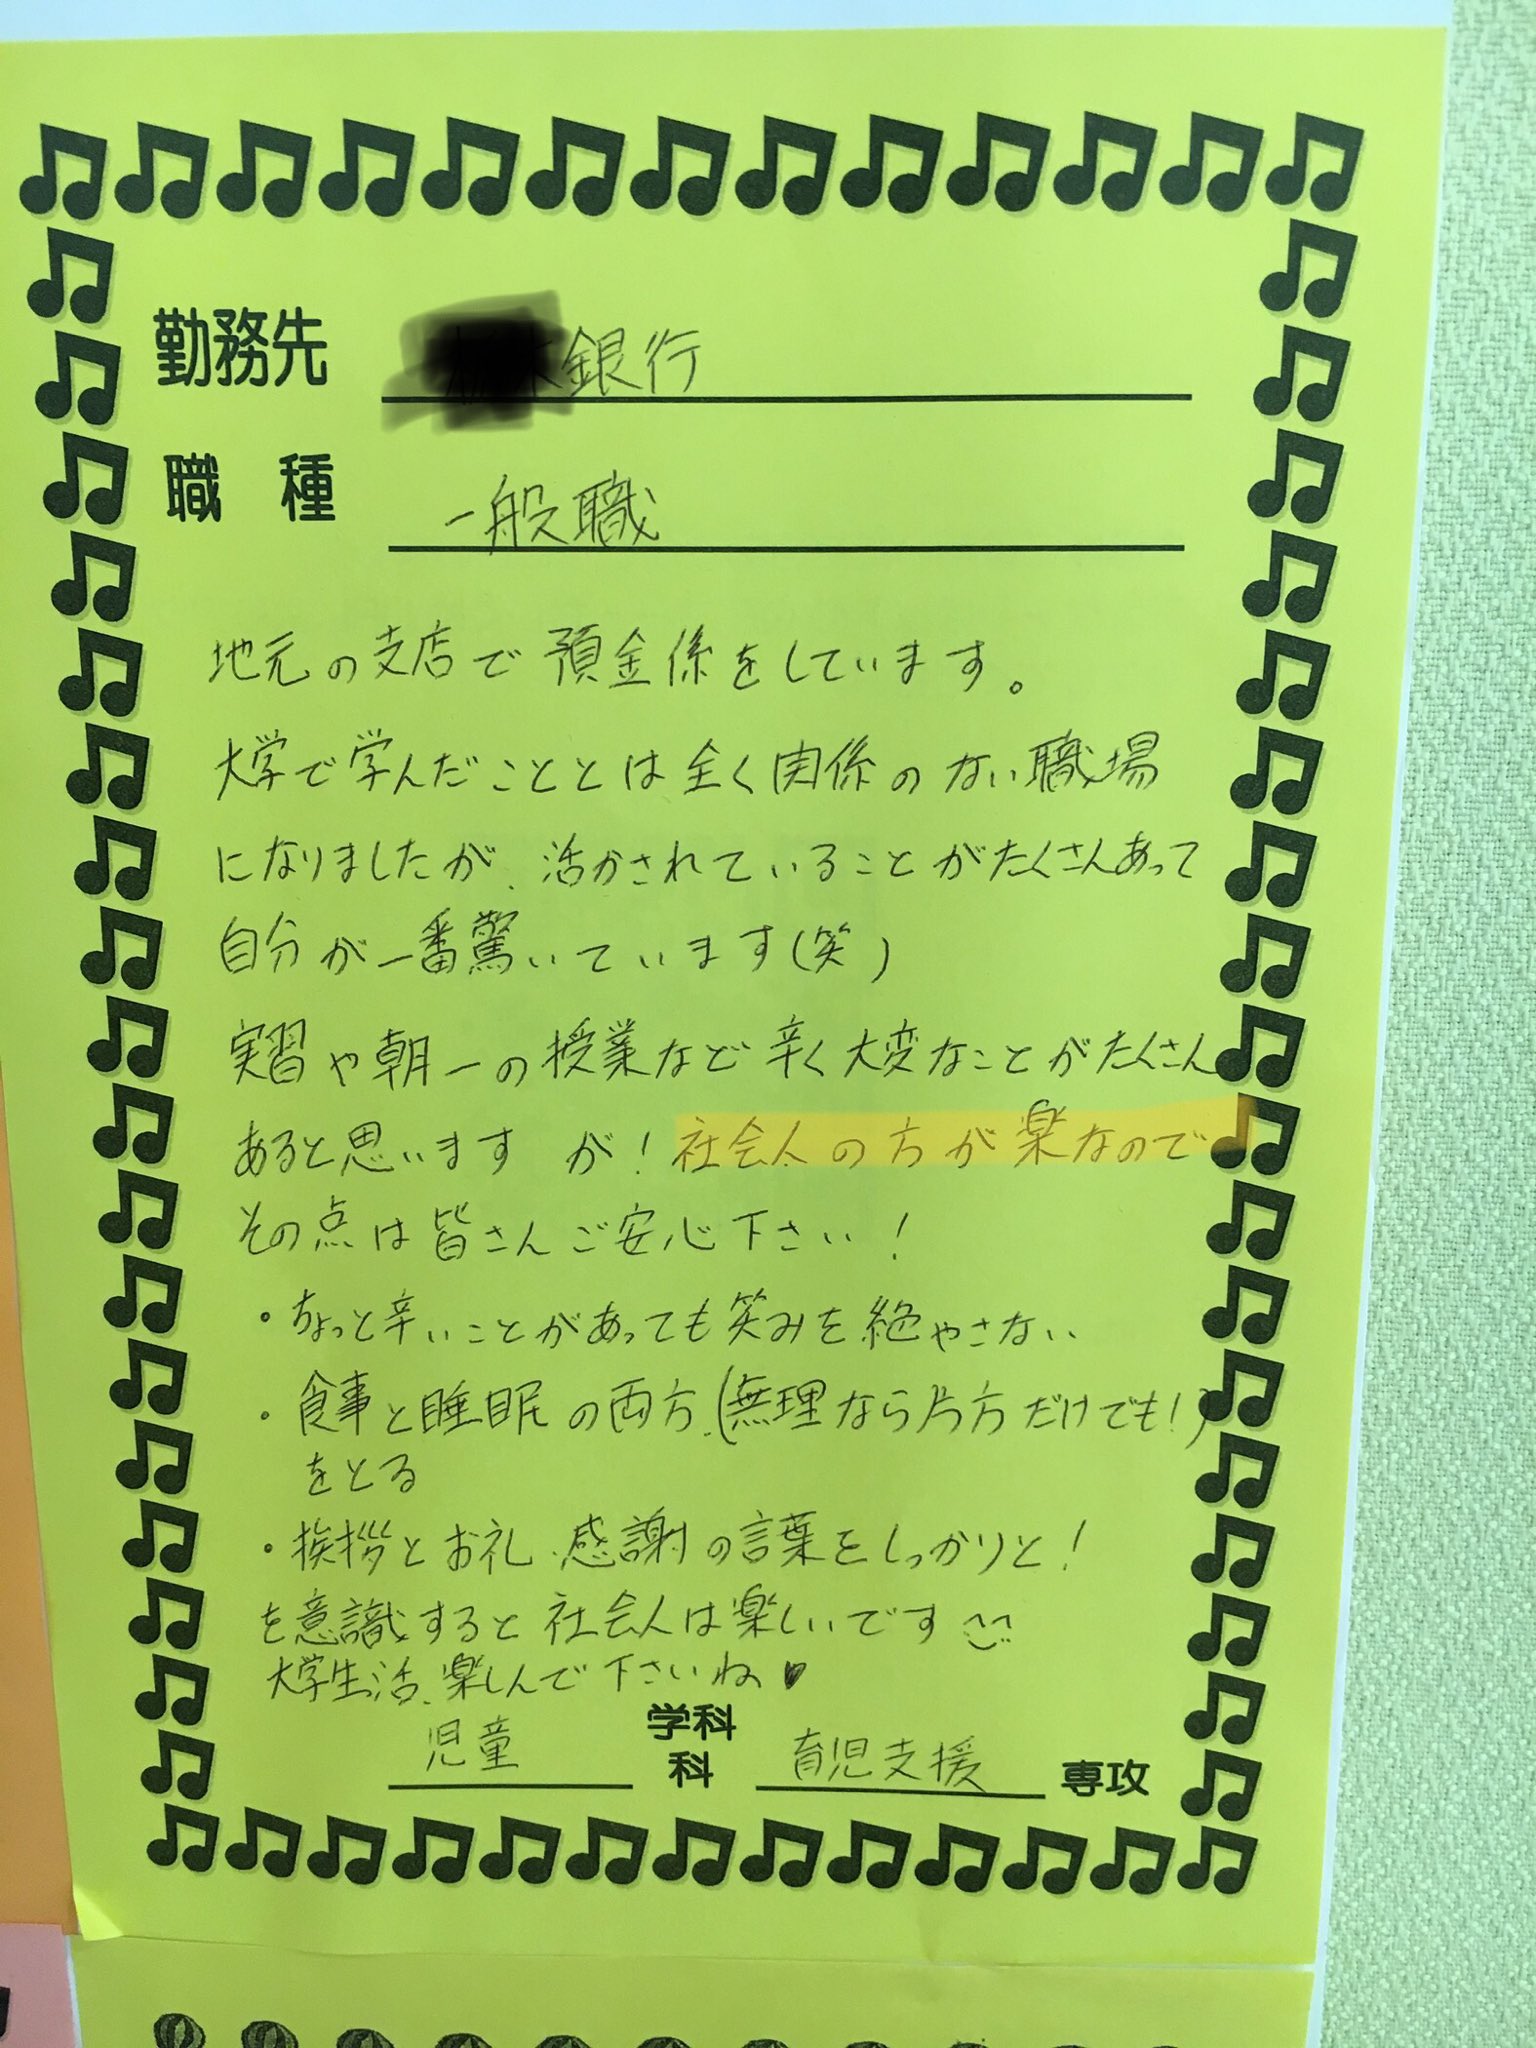 勤務先 銀行
職種 一般職
地元の支店で預金係をしています。
大学で学んだこととは全く関係のない職場
になりましたが、活かされていることがたくさんあって
自分が一番驚いています(笑)
実習や朝一の授業など辛く大変なことがたくさん
あると思いますが!社会人の方が楽なので
その点は皆さんご安心下さい!
・ちょっと辛いことがあっても笑みを絶やさない
・食事と睡眠の両方(無理なら片方だけでも!)
をとる
・挨拶とお礼、感謝の言葉をしっかりと!
を意識すると社会人は楽しいです
大学生活、楽しんで下さいね♥
児童 学科 科 育児支援 専攻